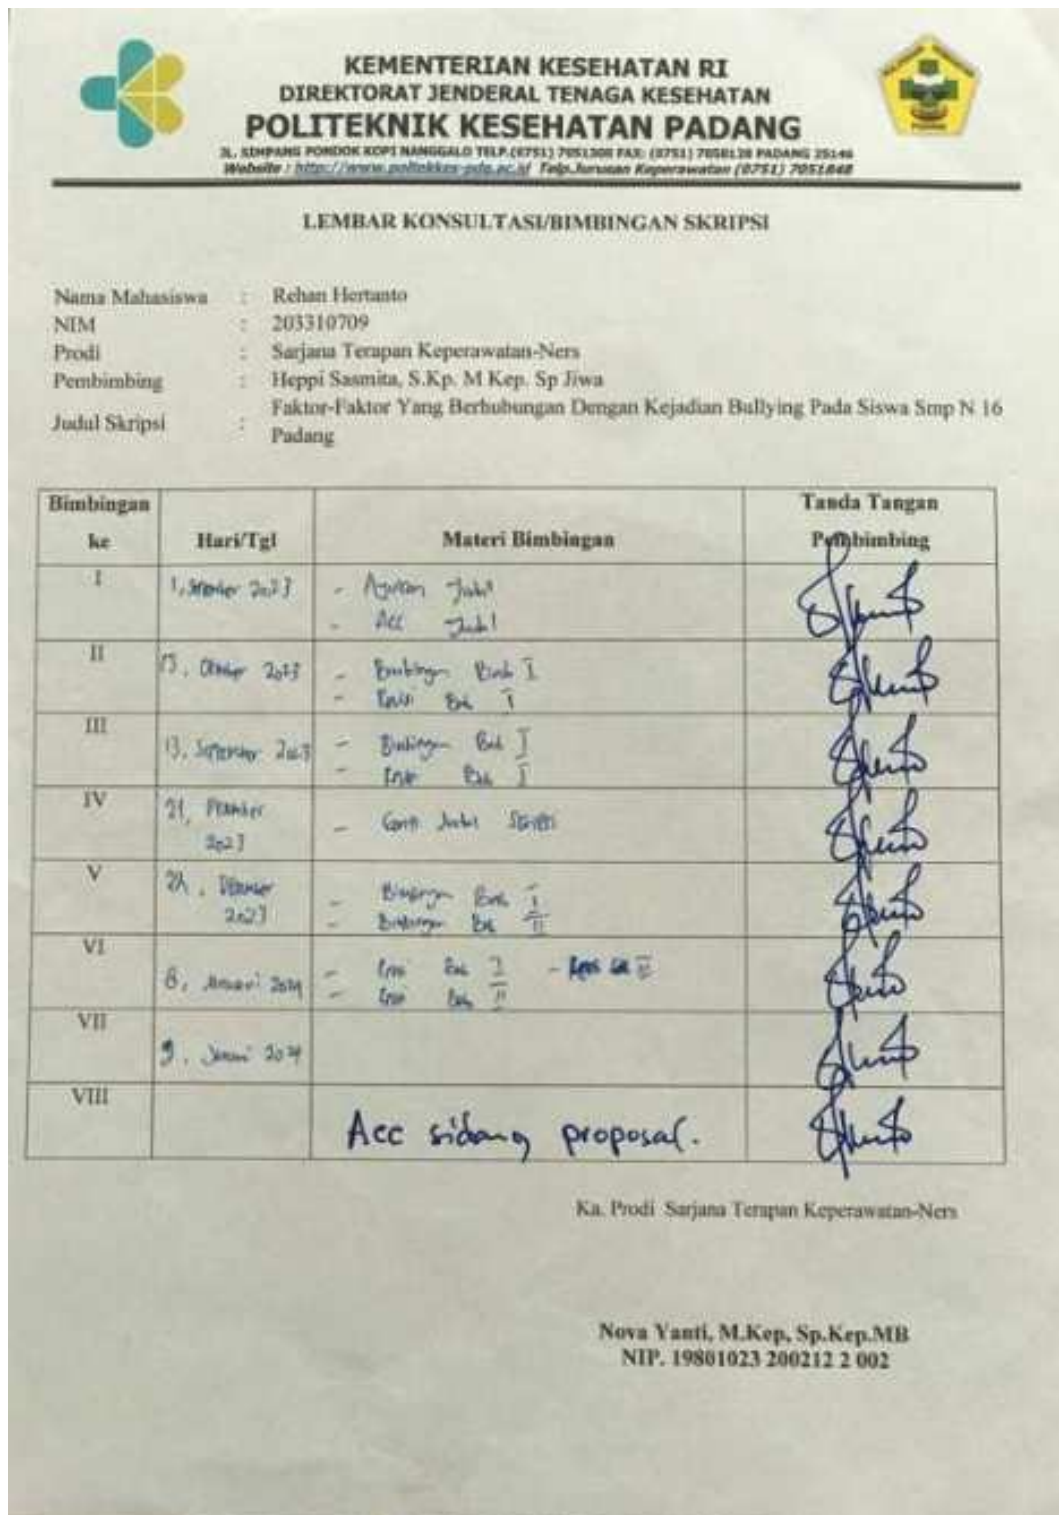 KEMENTERIAN KESEHATAN RI
DIREKTORAT JENDERAL TENAGA KESEHATAN
POLITEKNIK KESEHATAN PADANG
JL. SIMPANG PONDOK KOPI NANGGALO TELP.(0751) 7051300 FAX: (0751) 7058128 PADANG 25146
Website : http://www.poltekkes-pdg.ac.id Telp.Jurusan Keperawatan (0751) 7051848
LEMBAR KONSULTASI/BIMBINGAN SKRIPSI
Nama Mahasiswa : Rehan Hertanto
NIM : 203310709
Prodi : Sarjana Terapan Keperawatan-Ners
Pembimbing : Heppi Sasmita, S.Kp. M Kep. Sp Jiwa
Judul Skripsi : Faktor-Faktor Yang Berhubungan Dengan Kejadian Bullying Pada Siswa Smp N 16
Padang
Bimbingan ke Hari/Tgl Materi Bimbingan Tanda Tangan Pembimbing
I 1, 2023 - Judul
- Acc Judul
II 13, Oktober 2023 - Bimbingan Bab I
- Bab I
III 13, September 2023 - Bimbingan Bab I
- Bab I
IV 21, 2023 - Ganti Judul Skripsi
V 2023 - Bimbingan Bab I
- Bimbingan Bab II
VI 8, Januari 2024 - Bab I
- Bab II
VII 9, Januari 2024
VIII Acc sidang proposal.
Ka. Prodi Sarjana Terapan Keperawatan-Ners
Nova Yanti, M.Kep, Sp.Kep.MB
NIP. 19801023 200212 2 002